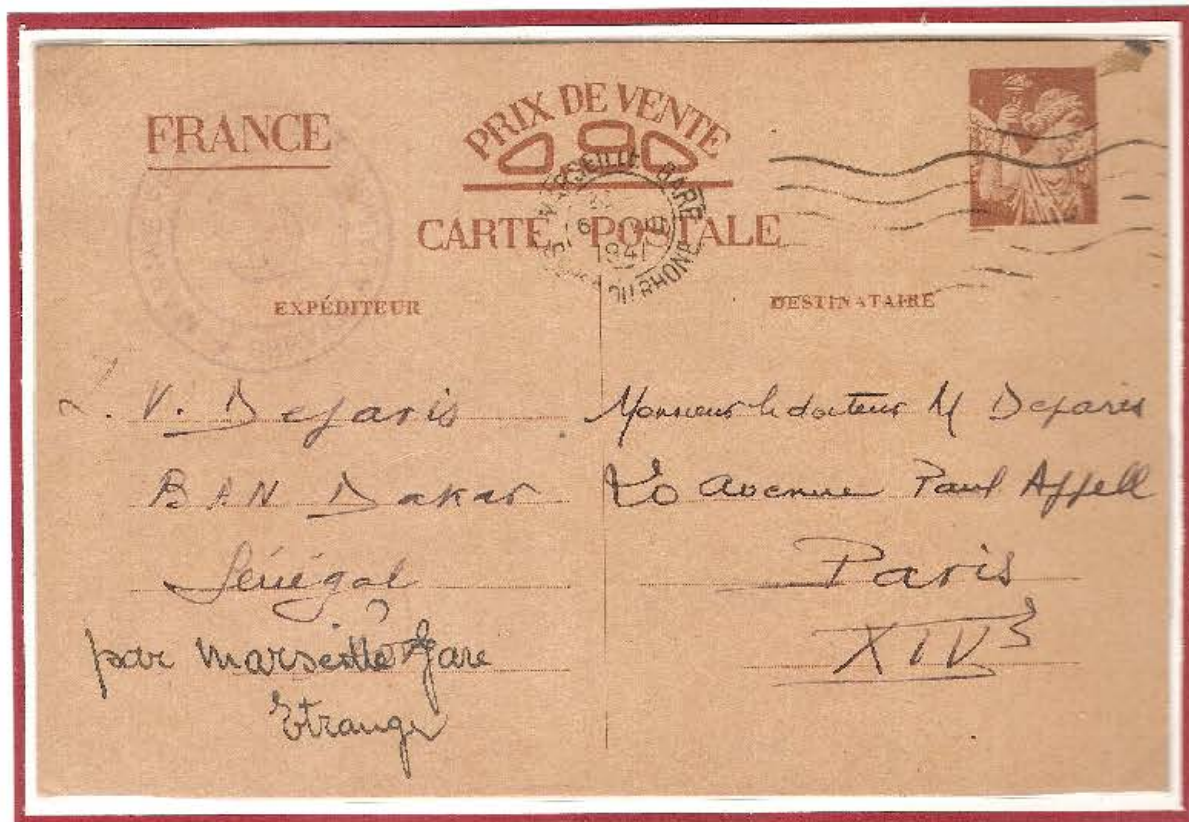 FRANCE
PRIX DE VENTE
0 80
CARTE POSTALE
MARSEILLE GARE
1941
DU RHONE
EXPÉDITEUR
DESTINATAIRE
V. Dejaris
BAN Dakar
Sénégal
par Marseille Gare
Etranger
Monsieur le docteur M Dejaris
20 avenue Paul Appell
Paris
XIVe